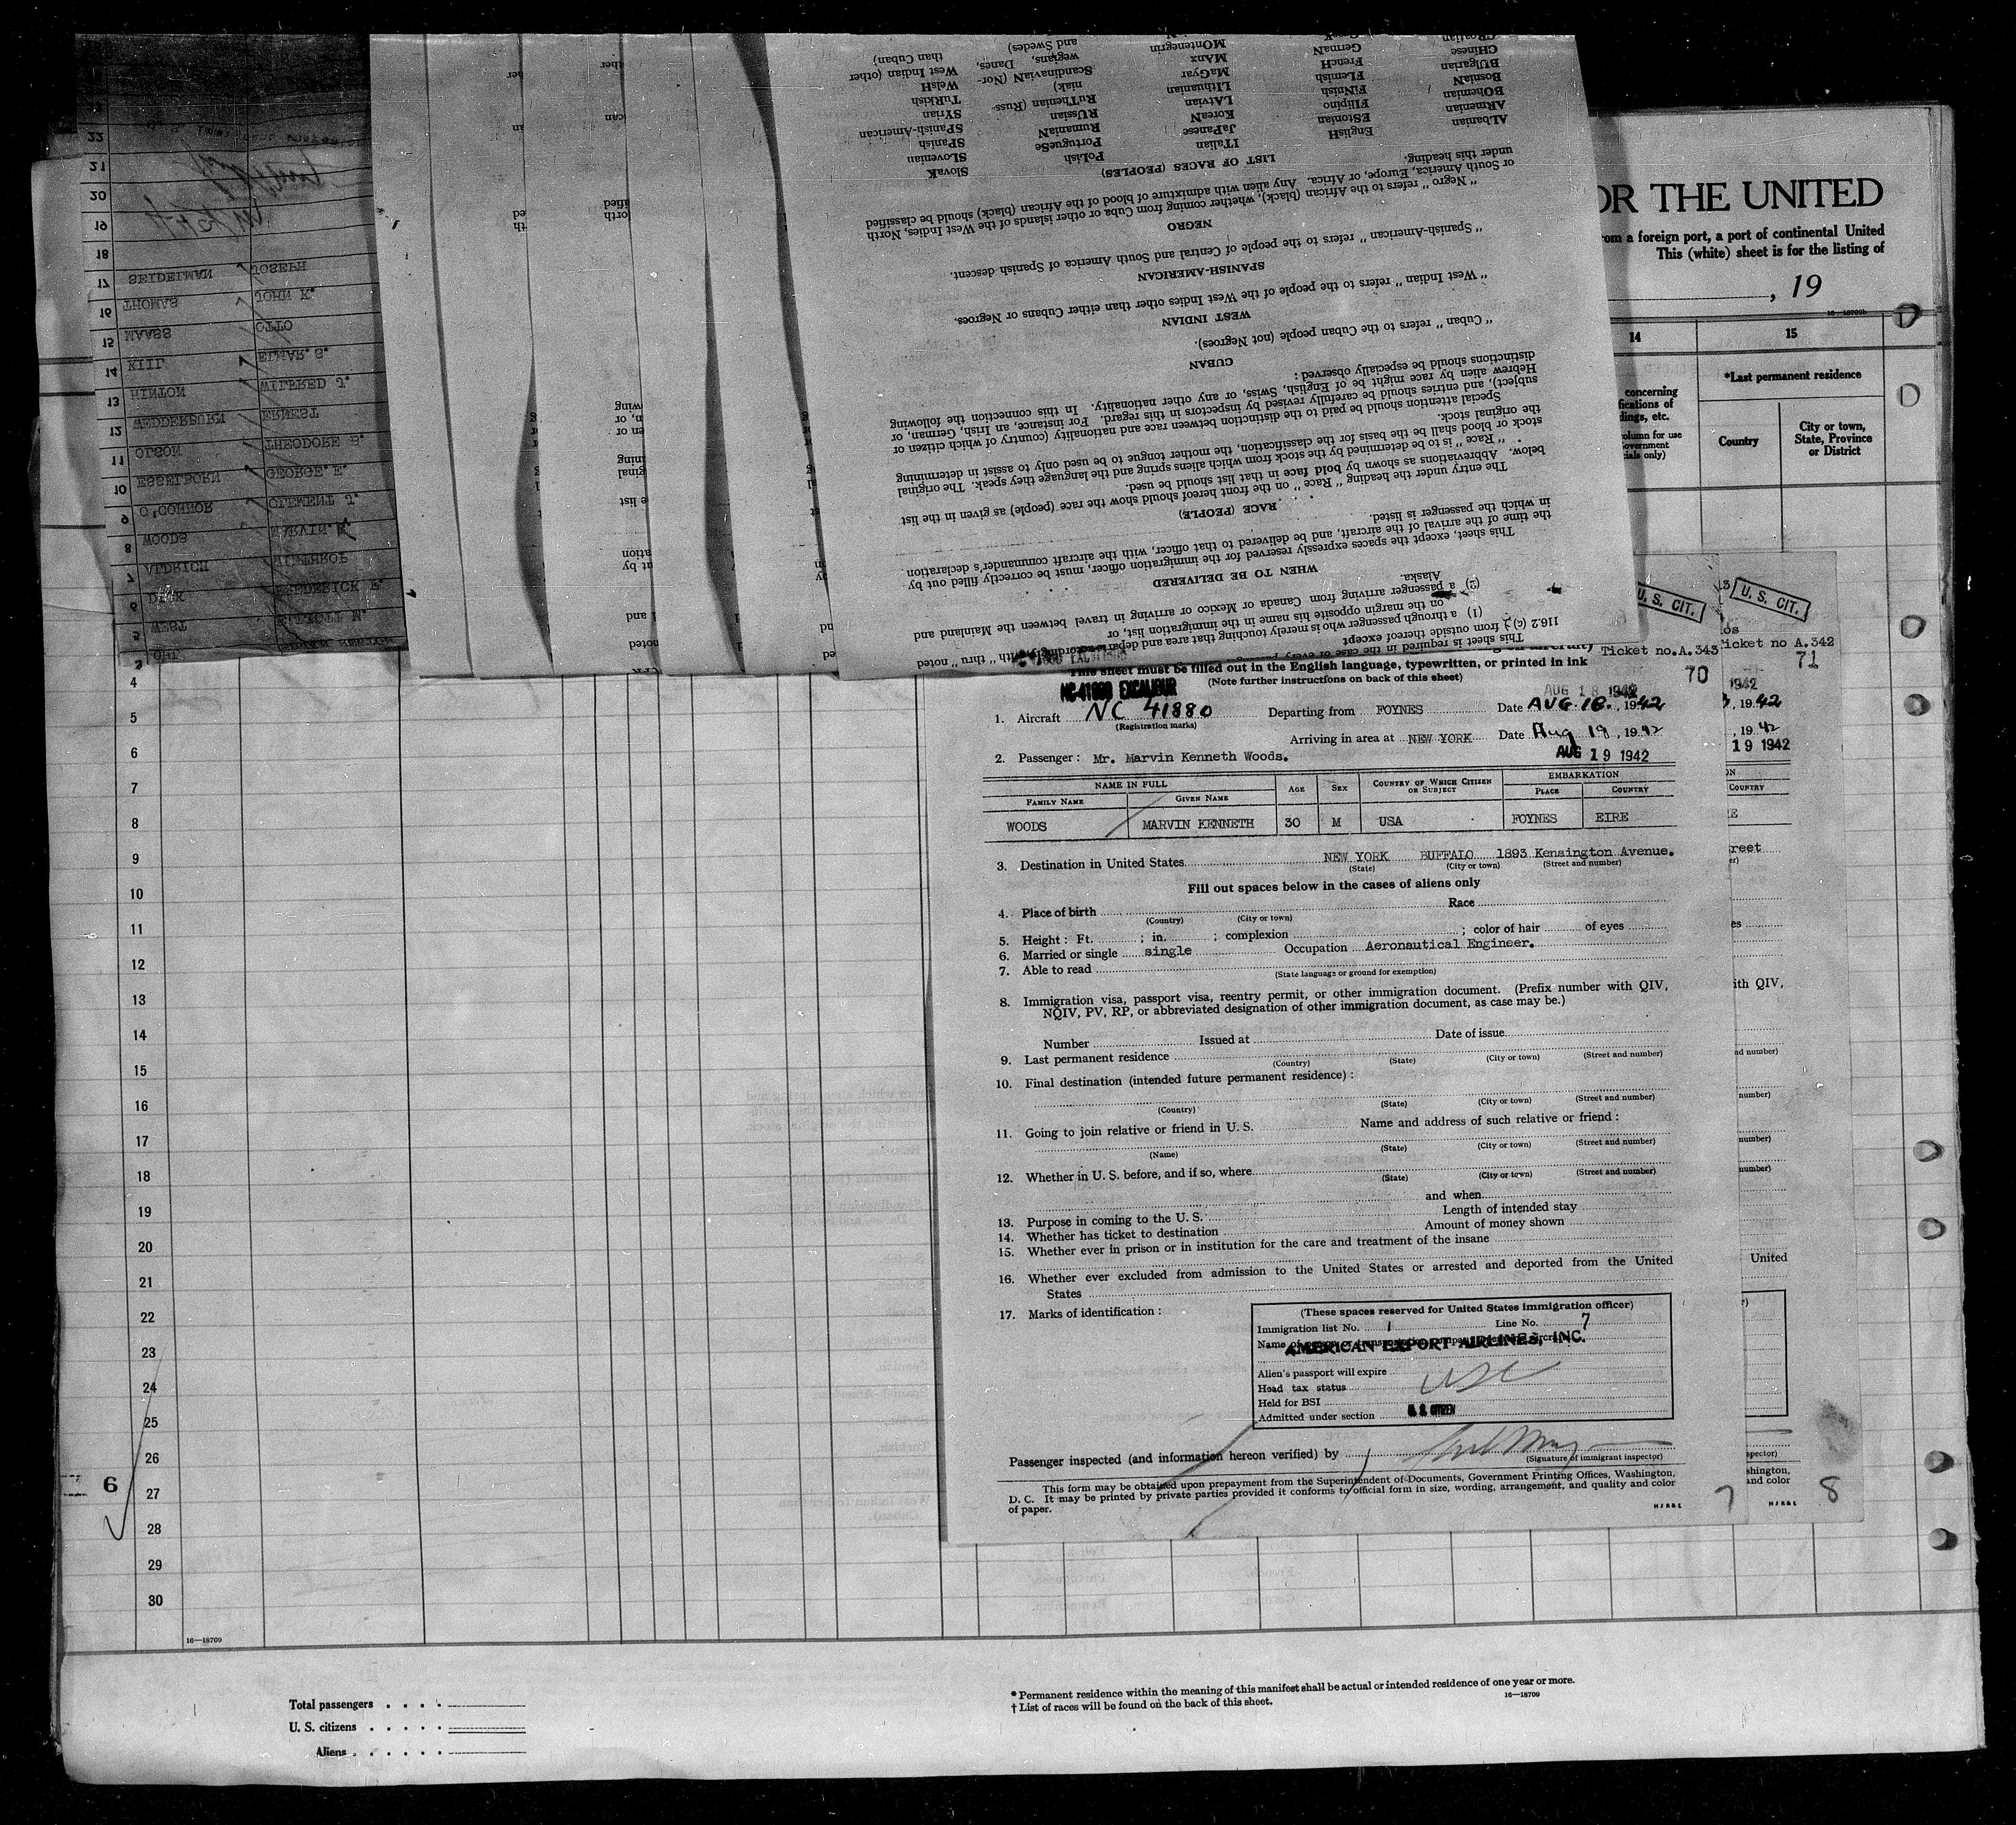 OR THE UNITED
rom a foreign port, a port of continental United
This (white) sheet is for the listing of
, 19
16—18709b
14
15
concerning
fications of
dings, etc.
*Last permanent residence
Country
City or town,
State, Province
or District
22
21
20
19
18
17 SEIDELMAN JOSEPH
16 THOMAS JOHN K.
15 MAASS OTTO
14 KIIL ELMAR. S.
13 HINTON WILFRED J.
12 WEDDERBURN ERNEST
11 OLSON THEODORE B.
10 ESSELBORN GEORGE. E.
9 O'CONNOR CLEMENT J.
8 WOODS MARVIN. K.
7 ALDRICH WINTHROP
6 DICK FREDERICK F.
5 WEST ELLIOTT N.
This sheet is required in the case of every
116.2 (c) ) from outside thereof except
(1) a through passenger who is merely touching that area and departs accordingly, with " thru " noted
on the margin opposite his name in the immigration list, or
(2) a passenger arriving from Canada or Mexico or arriving in travel between the Mainland and
Alaska.
WHEN TO BE DELIVERED
This sheet, except the spaces expressly reserved for the immigration officer, must be correctly filled out by
the time of the arrival of the aircraft, and be delivered to that officer, with the aircraft commander's declaration
in which the passenger is listed.
RACE (PEOPLE)
The entry under the heading " Race " on the front hereof should show the race (people) as given in the list
below. Abbreviations as shown by bold face in that list should be used.
" Race " is to be determined by the stock from which aliens spring and the language they speak. The original
stock or blood shall be the basis for the classification, the mother tongue to be used only to assist in determining
the original stock.
Special attention should be paid to the distinction between race and nationality (country of which citizen or
subject), and entries should be carefully revised by inspectors in this regard. For instance, an Irish, German, or
Hebrew alien by race might be of English, Swiss, or any other nationality. In this connection the following
distinctions should be especially observed :
CUBAN
" Cuban " refers to the Cuban people (not Negroes).
WEST INDIAN
" West Indian " refers to the people of the West Indies other than either Cubans or Negroes.
SPANISH-AMERICAN
" Spanish-American " refers to the people of Central and South America of Spanish descent.
NEGRO
" Negro " refers to the African (black), whether coming from Cuba or other islands of the West Indies, North
or South America, Europe, or Africa. Any alien with admixture of blood of the African (black) should be classified
under this heading.
LIST OF RACES (PEOPLES)
ALbanian EnglisH ITalian PoLish SlovaK
ARmenian EStonian JaPanese PortugueSe SLovenian
BOhemian Filipino KoreaN RumaniaN SPanish
BosniaN FiNnish LAtvian RUssian SPanisH-American
BUlgarian FLemish LIthuanian RuThenian (Russniak) SYrian
CHinese FrencH MaGyar ScandinaviaN (Norwegians, Danes, and Swedes) TuRkish
CRoatian GermaN MAnx WelsH
MOntenegrin West Indian (other than Cuban)
U. S. CIT.
U. S. CIT.
Ticket no.A.343
70
icket no A.342
71
This sheet must be filled out in the English language, typewritten, or printed in ink
(Note further instructions on back of this sheet)
NC-41880 EXCALIBUR
AUG 18 1942
1. Aircraft NC 41880 Departing from FOYNES Date AUG. 18. , 1942
(Registration marks)
Arriving in area at NEW YORK Date Aug 19 , 1942
AUG 19 1942
2. Passenger : Mr. Marvin Kenneth Woods.
19 1942
NAME IN FULL
FAMILY NAME GIVEN NAME AGE SEX COUNTRY OF WHICH CITIZEN OR SUBJECT EMBARKATION
PLACE COUNTRY
WOODS MARVIN KENNETH 30 M USA FOYNES EIRE
3. Destination in United States NEW YORK BUFFALO 1893 Kensington Avenue.
(State) (City or town) (Street and number)
Fill out spaces below in the cases of aliens only
4. Place of birth Race
(Country) (City or town)
5. Height : Ft. ; in. ; complexion ; color of hair of eyes
6. Married or single single Occupation Aeronautical Engineer.
7. Able to read
(State language or ground for exemption)
8. Immigration visa, passport visa, reentry permit, or other immigration document. (Prefix number with QIV,
NQIV, PV, RP, or abbreviated designation of other immigration document, as case may be.)
Number Issued at Date of issue
9. Last permanent residence
(Country) (State) (City or town) (Street and number)
10. Final destination (intended future permanent residence) :
(Country) (State) (City or town) (Street and number)
11. Going to join relative or friend in U. S. Name and address of such relative or friend :
(Name) (State) (City or town) (Street and number)
12. Whether in U. S. before, and if so, where
(State) (City or town) (Street and number)
and when
13. Purpose in coming to the U. S. Length of intended stay
14. Whether has ticket to destination Amount of money shown
15. Whether ever in prison or in institution for the care and treatment of the insane
16. Whether ever excluded from admission to the United States or arrested and deported from the United
States
17. Marks of identification :
(These spaces reserved for United States immigration officer)
Immigration list No. 1 Line No. 7
AMERICAN EXPORT AIRLINES, INC.
Alien's passport will expire
USC
Head tax status
Held for BSI
Admitted under section U. S. CITIZEN
Passenger inspected (and information hereon verified) by
(Signature of immigrant inspector)
This form may be obtained upon prepayment from the Superintendent of Documents, Government Printing Offices, Washington,
D. C. It may be printed by private parties provided it conforms to official form in size, wording, arrangement, and quality and color
of paper.
7
8
4
5
6
7
8
9
10
11
12
13
14
15
16
17
18
19
20
21
22
23
24
25
26
6
27
28
29
30
16—18709
Total passengers
U. S. citizens
Aliens
* Permanent residence within the meaning of this manifest shall be actual or intended residence of one year or more.
† List of races will be found on the back of this sheet.
16—18709